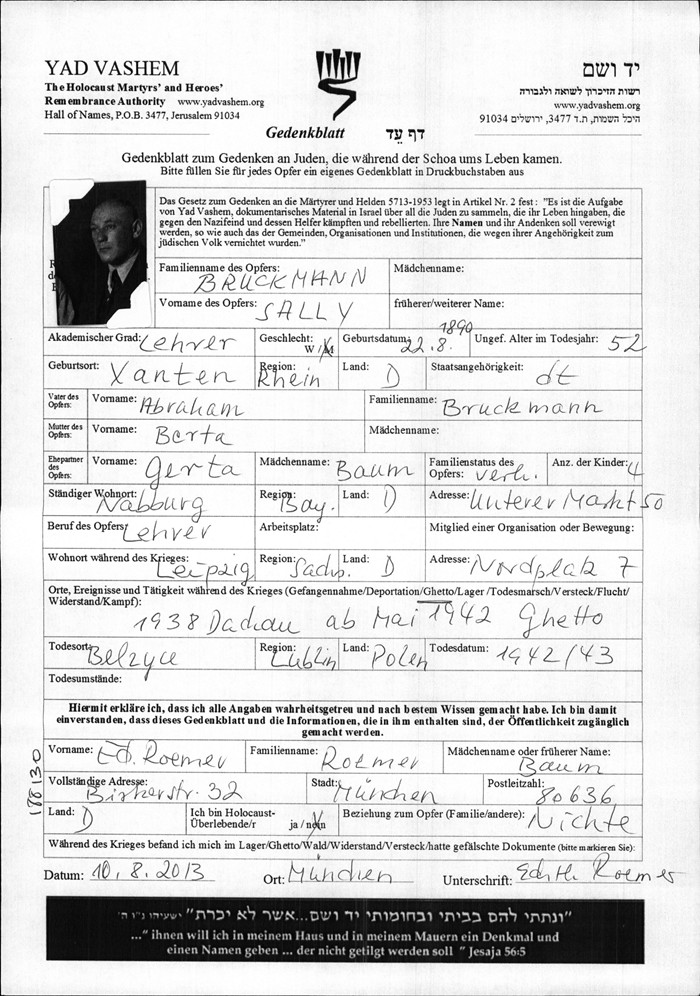 YAD VASHEM
The Holocaust Martyrs' and Heroes'
Remembrance Authority www.yadvashem.org
Hall of Names, P.O.B. 3477, Jerusalem 91034
יד ושם
רשות הזיכרון לשואה ולגבורה
www.yadvashem.org
היכל השמות, ת.ד 3477, ירושלים 91034
Gedenkblatt דף עֵד
Gedenkblatt zum Gedenken an Juden, die während der Schoa ums Leben kamen.
Bitte füllen Sie für jedes Opfer ein eigenes Gedenkblatt in Druckbuchstaben aus
Das Gesetz zum Gedenken an die Märtyrer und Helden 5713-1953 legt in Artikel Nr. 2 fest : "Es ist die Aufgabe
von Yad Vashem, dokumentarisches Material in Israel über all die Juden zu sammeln, die ihr Leben hingaben, die
gegen den Nazifeind und dessen Helfer kämpften und rebellierten. Ihre Namen und ihr Andenken soll verewigt
werden, so wie auch das der Gemeinden, Organisationen und Institutionen, die wegen ihrer Angehörigkeit zum
jüdischen Volk vernichtet wurden."
Familienname des Opfers: BRUCKMANN Mädchenname:
Vorname des Opfers: SALLY früherer/weiterer Name:
Akademischer Grad: Lehrer Geschlecht: W / M Geburtsdatum: 22.8. 1890 Ungef. Alter im Todesjahr: 52
Geburtsort: Xanten Region: Rhein Land: D Staatsangehörigkeit: dt
Vater des Opfers: Vorname: Abraham Familienname: Bruckmann
Mutter des Opfers: Vorname: Berta Mädchenname:
Ehepartner des Opfers: Vorname: Gerta Mädchenname: Baum Familienstatus des Opfers: verh. Anz. der Kinder: 4
Ständiger Wohnort: Nabburg Region: Bay. Land: D Adresse: Unterer Markt 50
Beruf des Opfers: Lehrer Arbeitsplatz: Mitglied einer Organisation oder Bewegung:
Wohnort während des Krieges: Leipzig Region: Sachs. Land: D Adresse: Nordplatz 7
Orte, Ereignisse und Tätigkeit während des Krieges (Gefangennahme/Deportation/Ghetto/Lager /Todesmarsch/Versteck/Flucht/
Widerstand/Kampf):
1938 Dachau ab Mai 1942 Ghetto
Todesort: Belzyce Region: Lublin Land: Polen Todesdatum: 1942/43
Todesumstände:
Hiermit erkläre ich, dass ich alle Angaben wahrheitsgetreu und nach bestem Wissen gemacht habe. Ich bin damit
einverstanden, dass dieses Gedenkblatt und die Informationen, die in ihm enthalten sind, der Öffentlichkeit zugänglich
gemacht werden.
Vorname: Ed. Roemer Familienname: Roemer Mädchenname oder früherer Name: Baum
Vollständige Adresse: Birkerstr. 32 Stadt: München Postleitzahl: 80636
Land: D Ich bin Holocaust-Überlebende/r ja / nein Beziehung zum Opfer (Familie/andere): Nichte
Während des Krieges befand ich mich im Lager/Ghetto/Wald/Widerstand/Versteck/hatte gefälschte Dokumente (bitte markieren Sie):
Datum: 10.8.2013 Ort: München Unterschrift: Edith Roemer
188130
"ונתתי להם בביתי ובחומותי יד ושם...אשר לא יכרת" ישעיהו נ"ו ה'
..." ihnen will ich in meinem Haus und in meinem Mauern ein Denkmal und
einen Namen geben ... der nicht getilgt werden soll " Jesaja 56:5